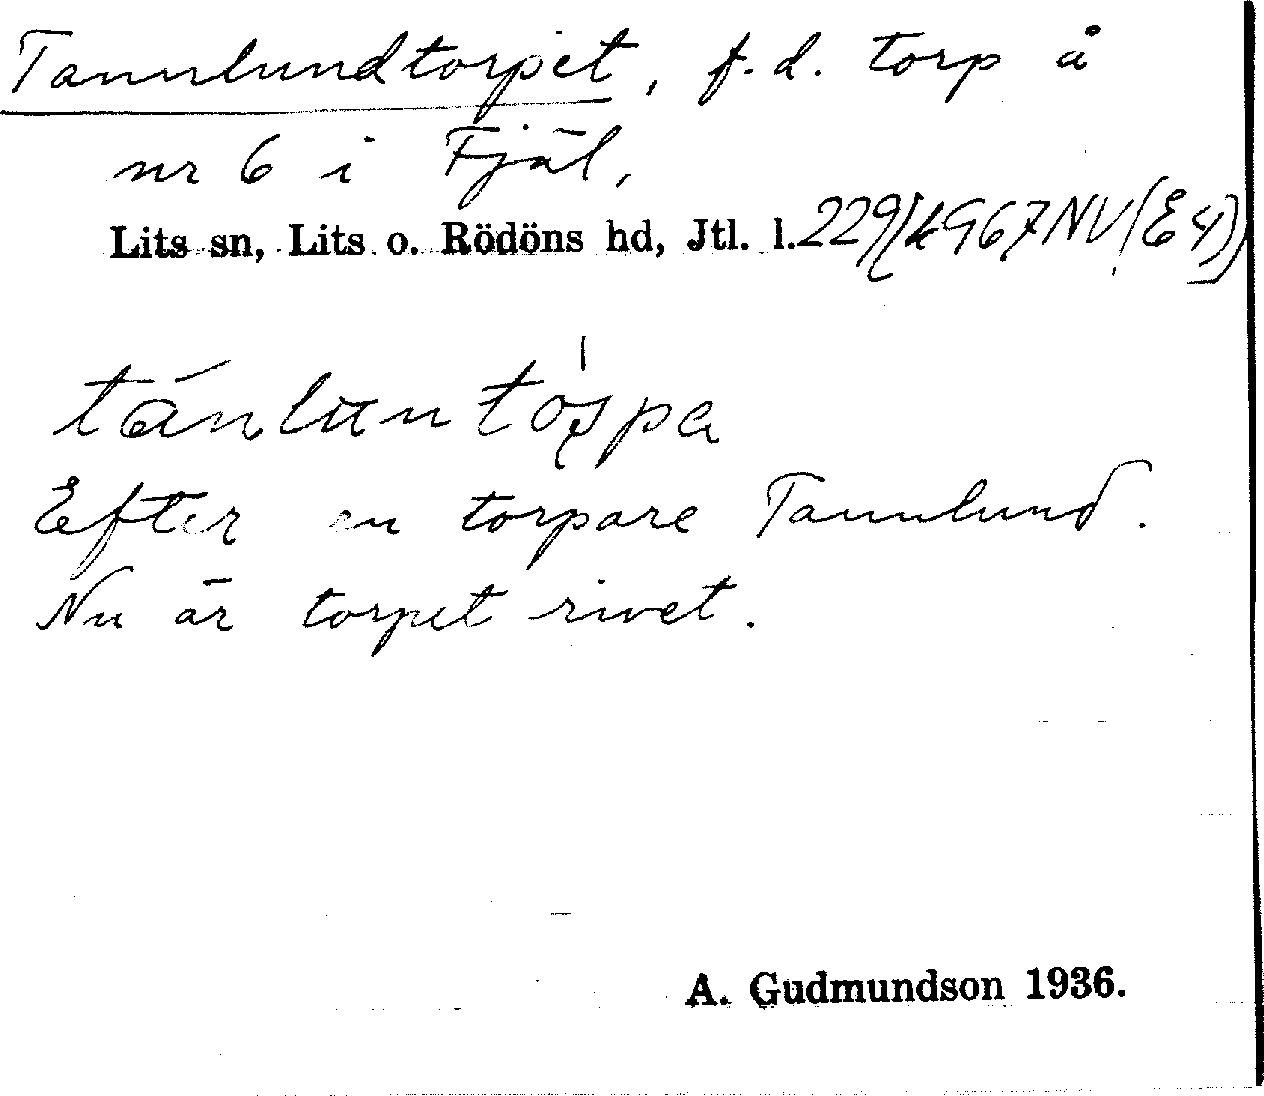 Tannlundtorpet, f.d. torp å
nr 6 i Fjäl,
Lits sn, Lits o. Rödöns hd, Jtl. l. 229/4967 NV (E4)
tánluntospa
Efter en torpare Tannlund.
Nu är torpet rivet.
A. Gudmundson 1936.